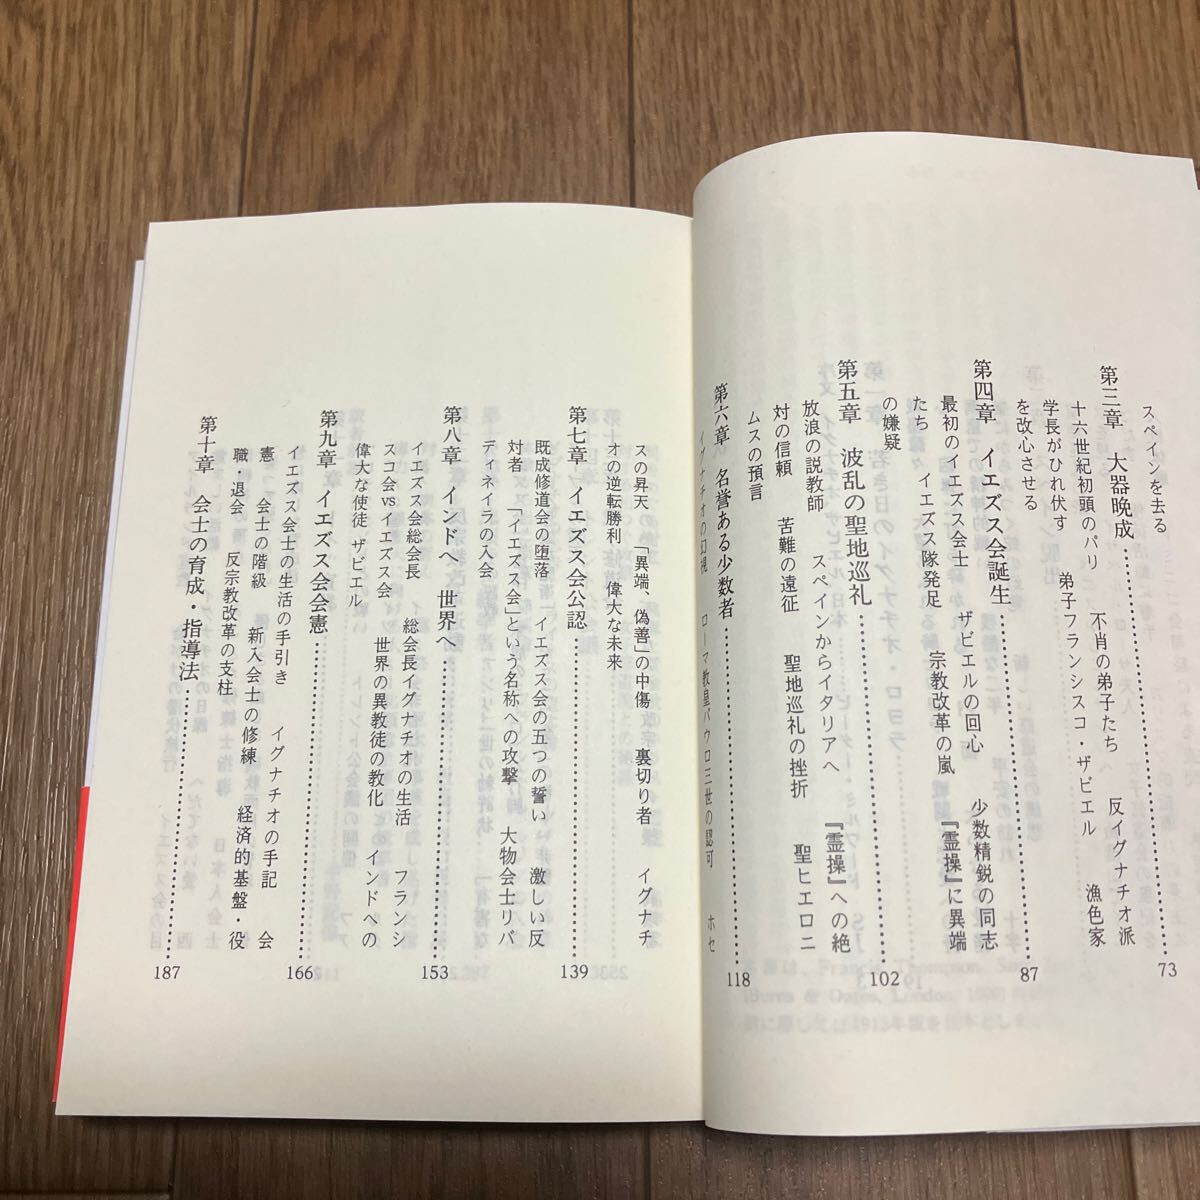 スペインを去る
第三章　大器晩成……………73
十六世紀初頭のパリ　不肖の弟子たち　反イグナチオ派
学長がひれ伏す　弟子フランシスコ・ザビエル　漁色家
を改心させる
第四章　イエズス会誕生……………87
最初のイエズス会士　ザビエルの回心　少数精鋭の同志
たち　イエズス隊発足　宗教改革の嵐　『霊操』に異端
の嫌疑
第五章　波乱の聖地巡礼……………102
放浪の説教師　スペインからイタリアへ　『霊操』への絶
対の信頼　苦難の遠征　聖地巡礼の挫折　聖ヒエロニ
ムスの預言
第六章　名誉ある少数者……………118
イグナチオの幻視　ローマ教皇パウロ三世の認可　ホセ
スの昇天　「異端、偽善」の中傷　裏切り者　イグナチ
オの逆転勝利　偉大な未来
第七章　イエズス会公認……………139
既成修道会の堕落　イエズス会の五つの誓い　激しい反
対者　「イエズス会」という名称への攻撃　大物会士リバ
ディネイラの入会
第八章　インドへ、世界へ……………153
イエズス会総会長　総会長イグナチオの生活　フランシ
スコ会vsイエズス会　世界の異教徒の教化　インドへの
偉大な使徒　ザビエル
第九章　イエズス会会憲……………166
イエズス会士の生活の手引き　イグナチオの手記　会
憲　会士の階級　新入会士の修練　経済的基盤・役
職・退会　反宗教改革の支柱
第十章　会士の育成・指導法……………187